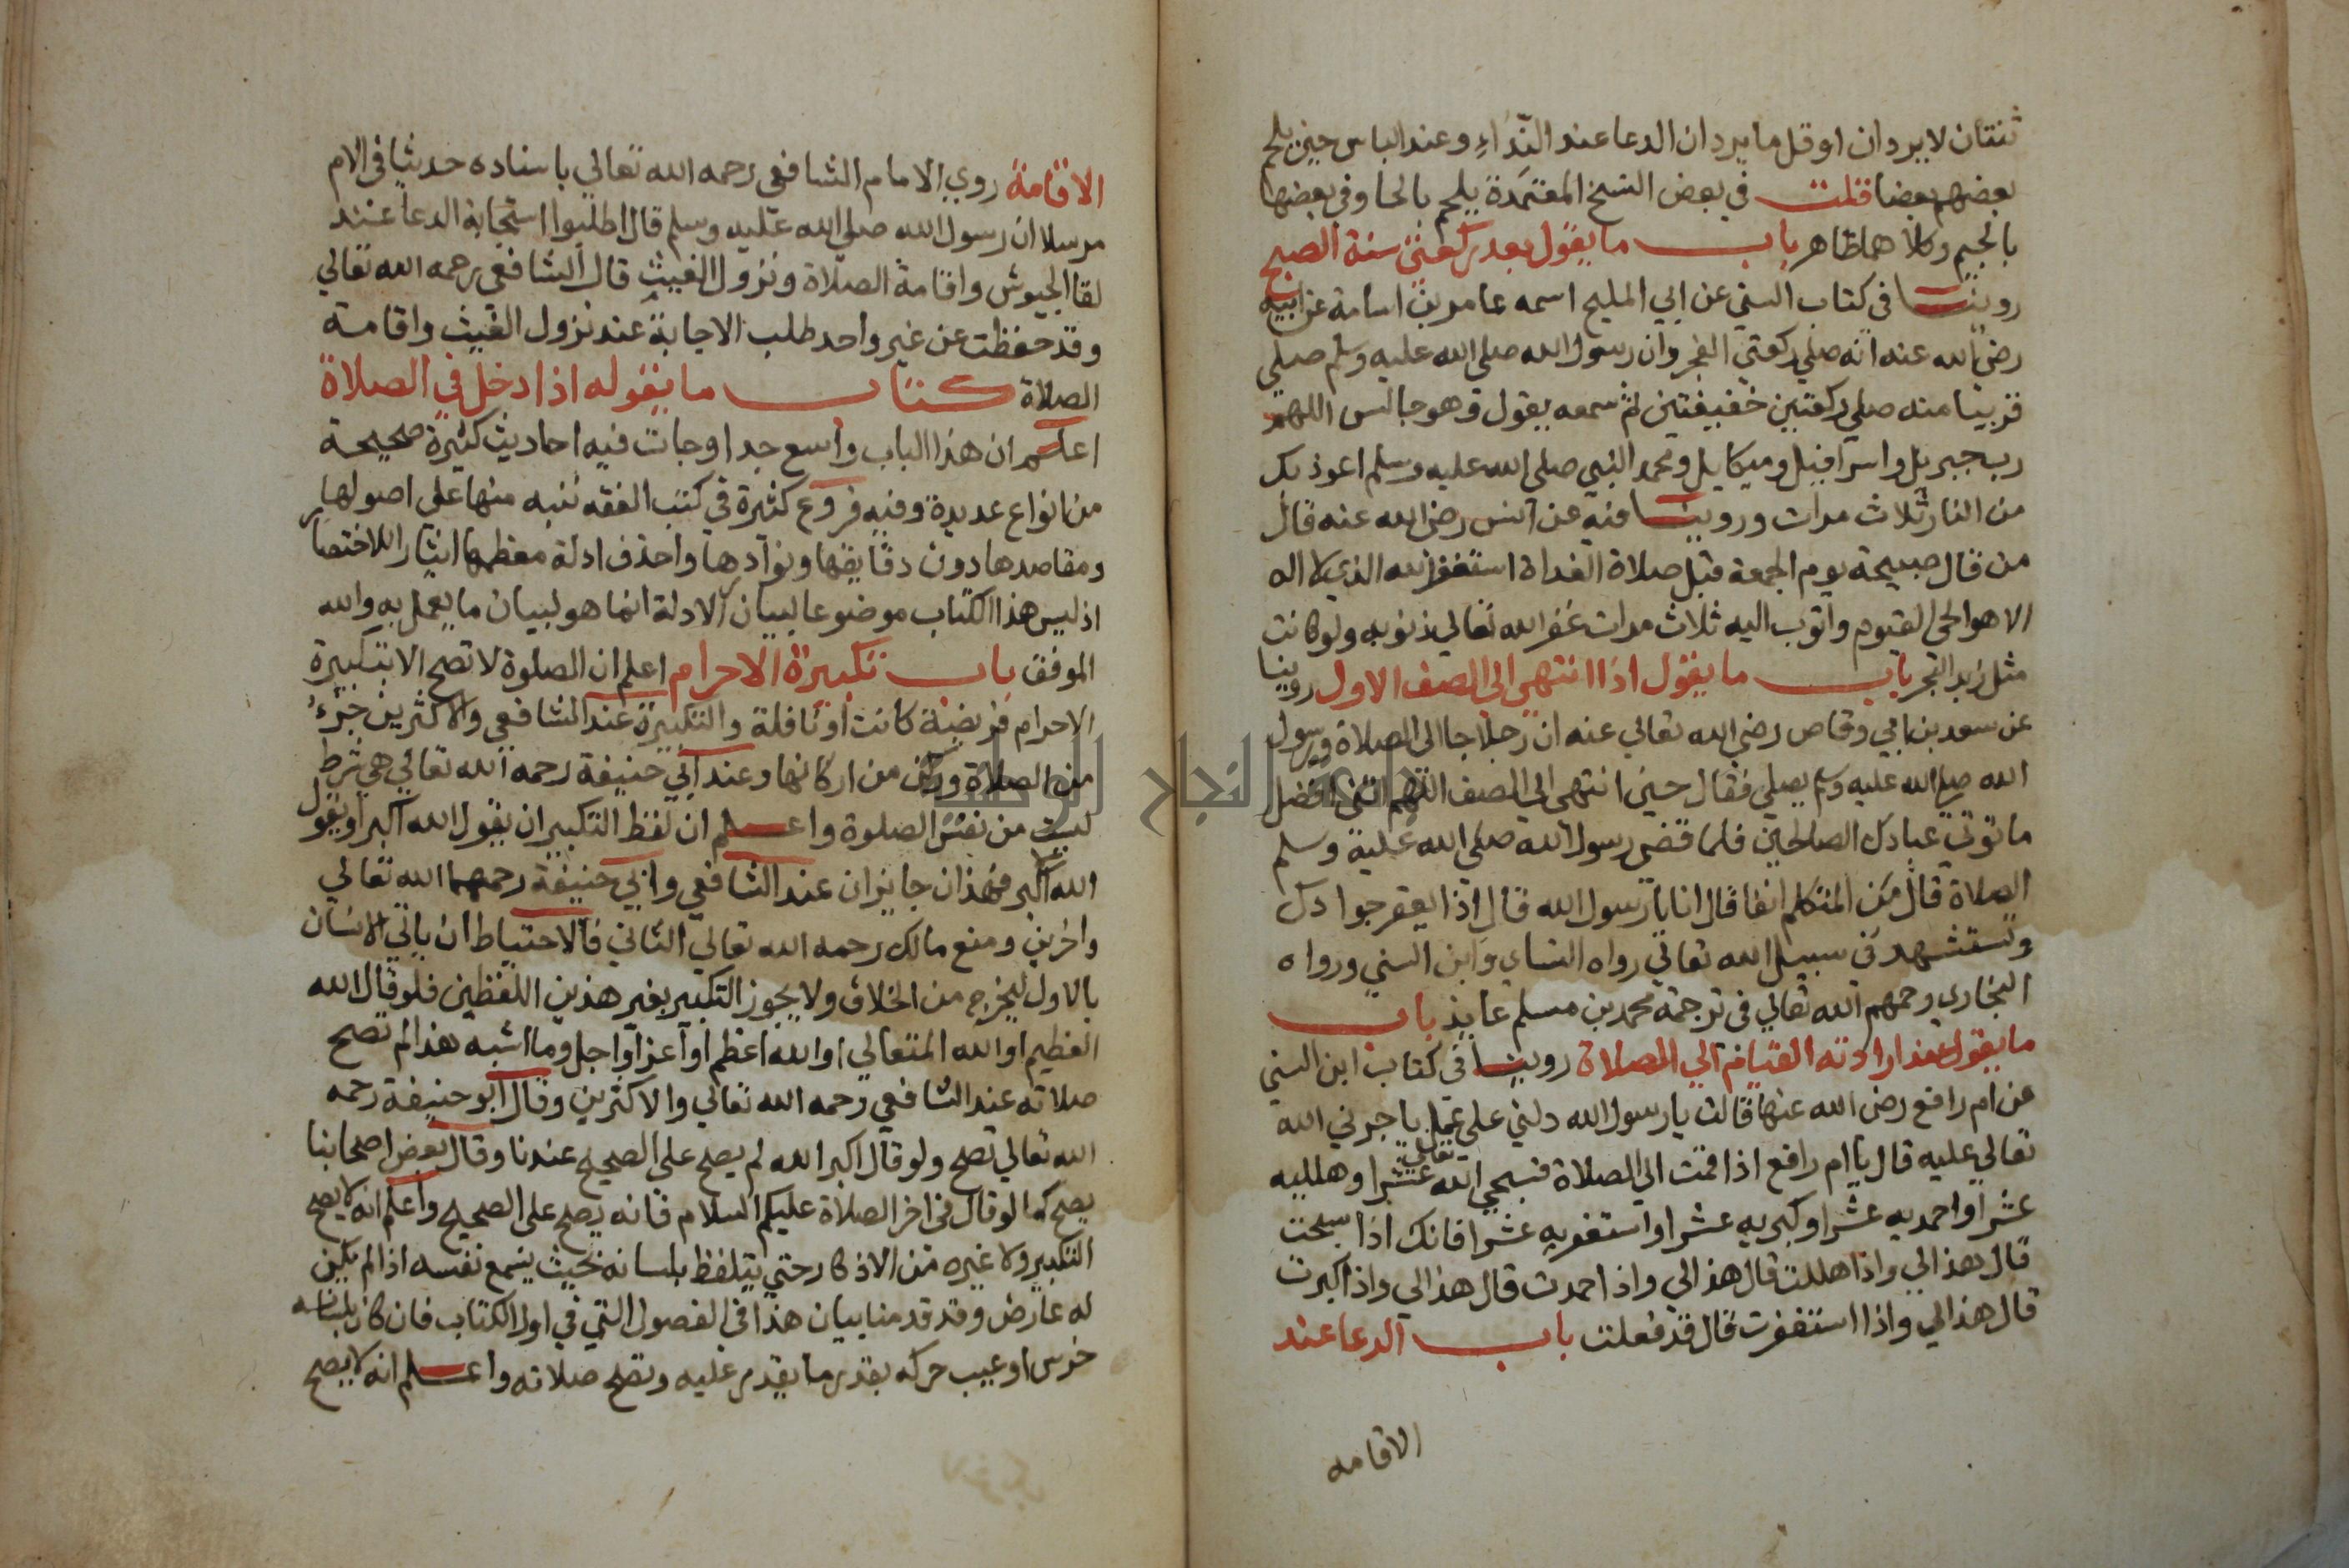 ثنتان لا يردان او قل ما يردان الدعا عند النداءِ وعند الباس حين يلحم
بعضهم بعضا قلت في بعض النسخ المعتمدة يلحم بالحا وفي بعضها
بالجيم وكلاهما ظاهر باب ما يقول بعد ركعتي سنة الصبح
روينا في كتاب السني عن ابي المليح اسمه عامر بن اسامة عن ابيه
رضي الله عنه انه صلي ركعتي الفجر وان رسول الله صلي الله عليه وسلم صلي
قريبا منه صلي ركعتين خفيفتين ثم سمعه يقول وهو جالس اللهم
رب جبريل واسرافيل وميكايل ومحمد النبي صلي الله عليه وسلم اعوذ بك
من النار ثلاث مرات وروينا فيه عن انس رضي الله عنه قال
من قال صبيحة يوم الجمعة قبل صلاة الغداة استغفر الله الذي لا اله
الا هو الحي القيوم واتوب اليه ثلاث مرات غفر الله تعالي ذنوبه ولو كانت
مثل زبد البحر باب ما يقول اذا انتهي الي الصف الاول روينا
عن سعد بن ابي وقاص رضي الله تعالي عنه ان رجلا جا الي الصلاة ورسول
الله صلي الله عليه وسلم يصلي فقال حين انتهي الي الصف اللهم اتني افضل
ما توتي عبادك الصالحين فلما قضي رسول الله صلي الله عليه وسلم
الصلاة قال من المتكلم انفا قال انا يا رسول الله قال اذا يعقر جوادك
وتستشهد في سبيل الله تعالي رواه النساي وابن السني ورواه
البخاري رحمهم الله تعالي في ترجمة محمد بن مسلم عايذ باب
ما يقول عند ارادته القيام الي الصلاة روينا في كتاب ابن السني
عن ام رافع رضي الله عنها قالت يا رسول الله دلني علي عمل ياجرني الله
تعالي عليه قال يا ام رافع اذا قمت الي الصلاة فسبحي الله تعالي عشرا وهلليه
عشرا واحمديه عشرا وكبريه عشرا واستغفريه عشرا فانك اذا سبحت
قال هذا لي واذا هللت قال هذا لي واذا حمدت قال هذا لي واذا كبرت
قال هذا لي واذا استغفرت قال قد فعلت باب الدعا عند
الاقامه
الاقامة روي الامام الشافعي رحمه الله تعالي باسناده حديثا في الام
مرسلا ان رسول الله صلي الله عليه وسلم قال اطلبوا استجابة الدعا عند
لقا الجيوش واقامة الصلاة ونزول الغيث قال الشافعي رحمه الله تعالي
وقد حفظت عن غير واحد طلب الاجابة عند نزول الغيث واقامة
الصلاة كتاب ما يقوله اذا دخل في الصلاة
اعلم ان هذا الباب واسع جدا وجات فيه احاديث كثيرة صحيحة
من انواع عديدة وفيه فروع كثيرة في كتب الفقه ننبه منها علي اصولها
ومقاصدها دون دقايقها ونوادرها واحذف ادلة معظمها ايثارا للاختصار
اذ ليس هذا الكتاب موضوعا لبيان الادلة انما هو لبيان ما يعمل به والله
الموفق باب تكبيرة الاحرام اعلم ان الصلوة لا تصح الا بتكبيرة
الاحرام فريضة كانت او نافلة والتكبيرة عند الشافعي والاكثرين جزءٌ
من الصلاة وركن من اركانها وعند ابي حنيفة رحمه الله تعالي هي شرط
ليست من نفس الصلوة واعلم ان لفظ التكبير ان يقول الله اكبر او يقول
الله الاكبر فهذان جايزان عند الشافعي وابي حنيفة رحمهما الله تعالي
واخرين ومنع مالك رحمه الله تعالي الثاني فالاحتياط ان ياتي الانسان
بالاول ليخرج من الخلاف ولا يجوز التكبير بغير هذين اللفظين فلو قال الله
العظيم او الله المتعالي او الله اعظم او اعز او اجل وما اشبه هذا لم تصح
صلاته عند الشافعي رحمه الله تعالي والاكثرين وقال ابو حنيفة رحمه
الله تعالي تصح ولو قال اكبر الله لم يصح علي الصحيح عندنا وقال بعض اصحابنا
يصح كما لو قال في اخر الصلاة عليكم السلام فانه يصح علي الصحيح واعلم انه لا يصح
التكبير ولا غيره من الاذكار حتي يتلفظ بلسانه بحيث يسمع نفسه اذا لم يكن
له عارض وقد قدمنا بيان هذا في الفصول التي في اول الكتاب فان كان بلسانه
خرس او عيب حركه بقدر ما يقدر عليه وتصح صلاته واعلم انه لا يصح